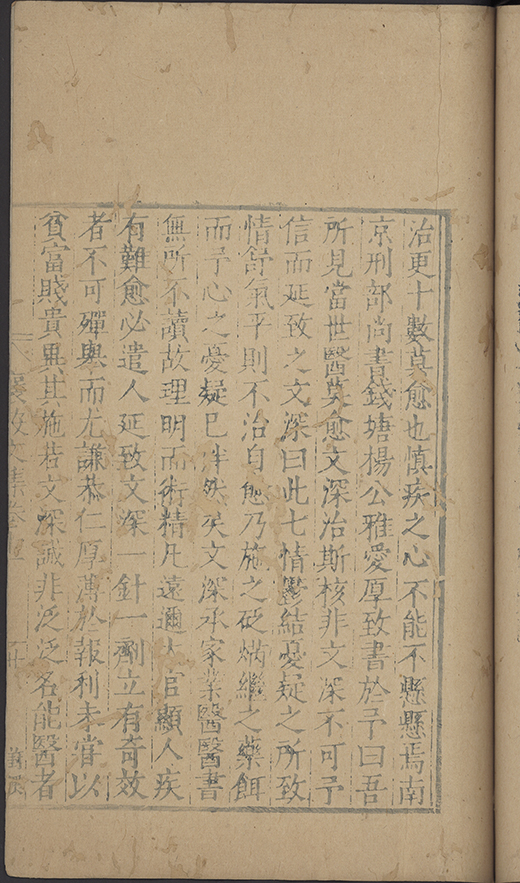 治更十數莫愈也慎疾之心不能不懸懸焉南
京刑部尚書錢塘楊公雅愛厚致書於予曰吾
所見當世醫莫愈文深治斯核非文深不可予
信而延致之文深曰此七情鬱結憂疑之所致
情舒氣平則不治自愈乃施之砭焫繼之藥餌
而予心之憂疑已泮然矣文深承家業醫醫書
無所不讀故理明而術精凡遠邇人官顯人疾
有難愈必遣人延致文深一針一劑立有奇效
者不可殫舉而尤謙恭仁厚薄於報利未嘗以
貧富賤貴異其施若文深誠非泛泛名能醫者
文集卷